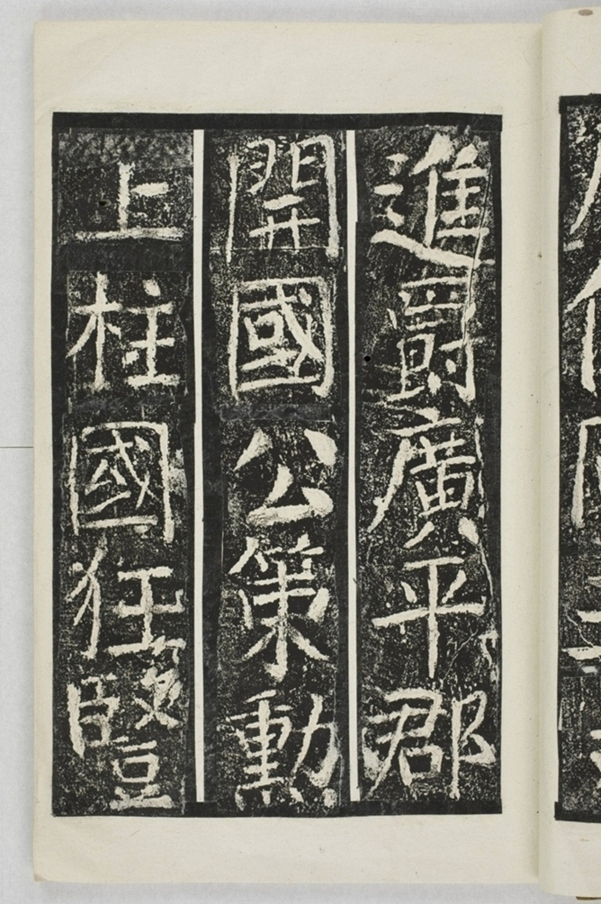 進爵廣平郡
開國公策勳
上柱國狂豎